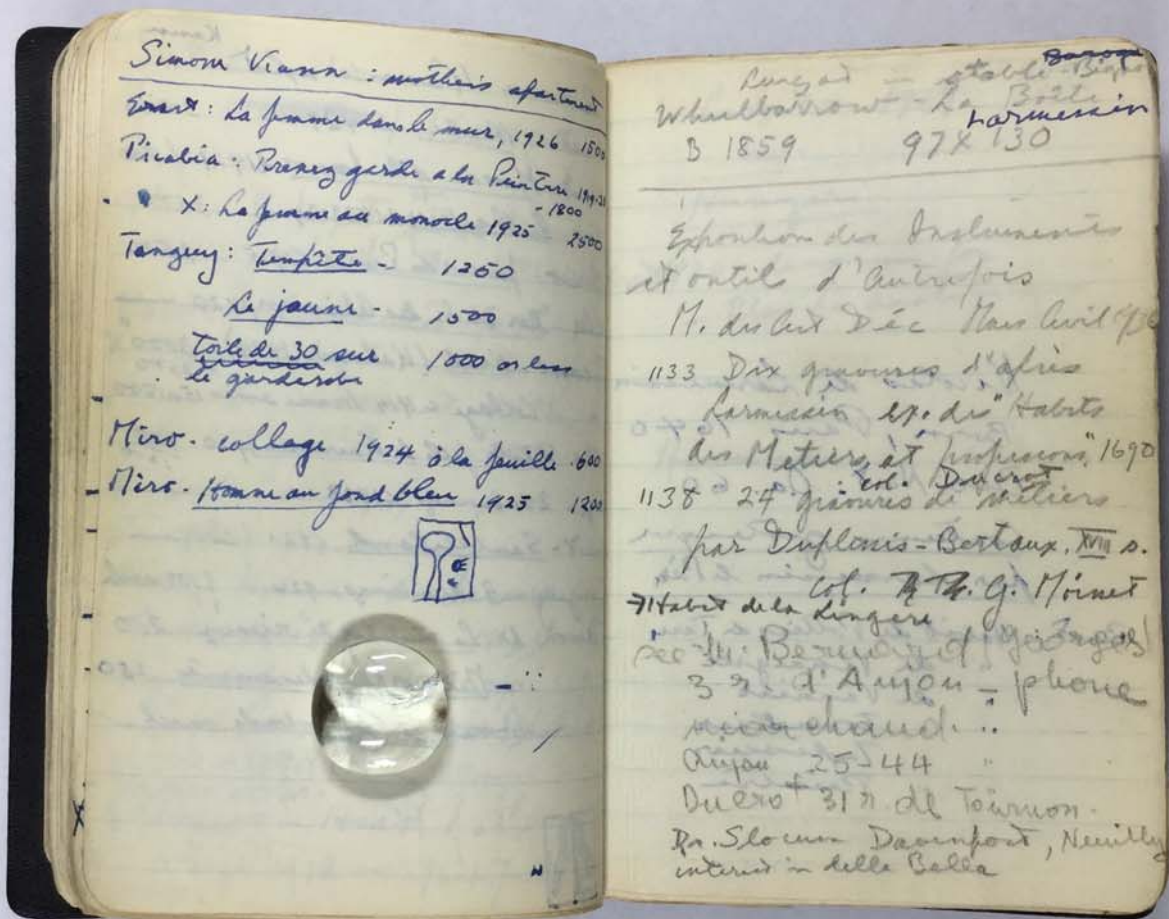 Simone : mother's apartment
Ernst : La femme dans le mur, 1926 1500
Picabia : Prenez garde a la Peinture 1919-20
- 1800
X : La femme au monocle 1925 2500
Tanguy : Tempête - 1250
Le jaune - 1500
toile de 30 sur 1000 or less
le garderobe
Miro - collage 1924 à la feuille - 600
Miro - Homme au fond bleu 1925 1200
Baroque
stable
Wheelbarrow - La Boëtie
Larmessin
B 1859 97 X 130
Exposition des Instruments
et outils d'Autrefois
M. des Art Déc Mars Avril 1936
1133 Dix gravures d'après
Larmessin ex. des "Habits
des Metiers et professions" 1690
col. Ducrot
1138 24 gravures de métiers
par Duplessis-Bertaux, XVIII s.
col. Th. G. Moinet
Habit de la Lingère
see M. Bernard, Georges
3 r. d'Anjou - phone
marchand
Anjou 25-44
Ducrot 31 r. de Tournon.
Dr. Slocum Davenport, Neuilly
interest in della Bella